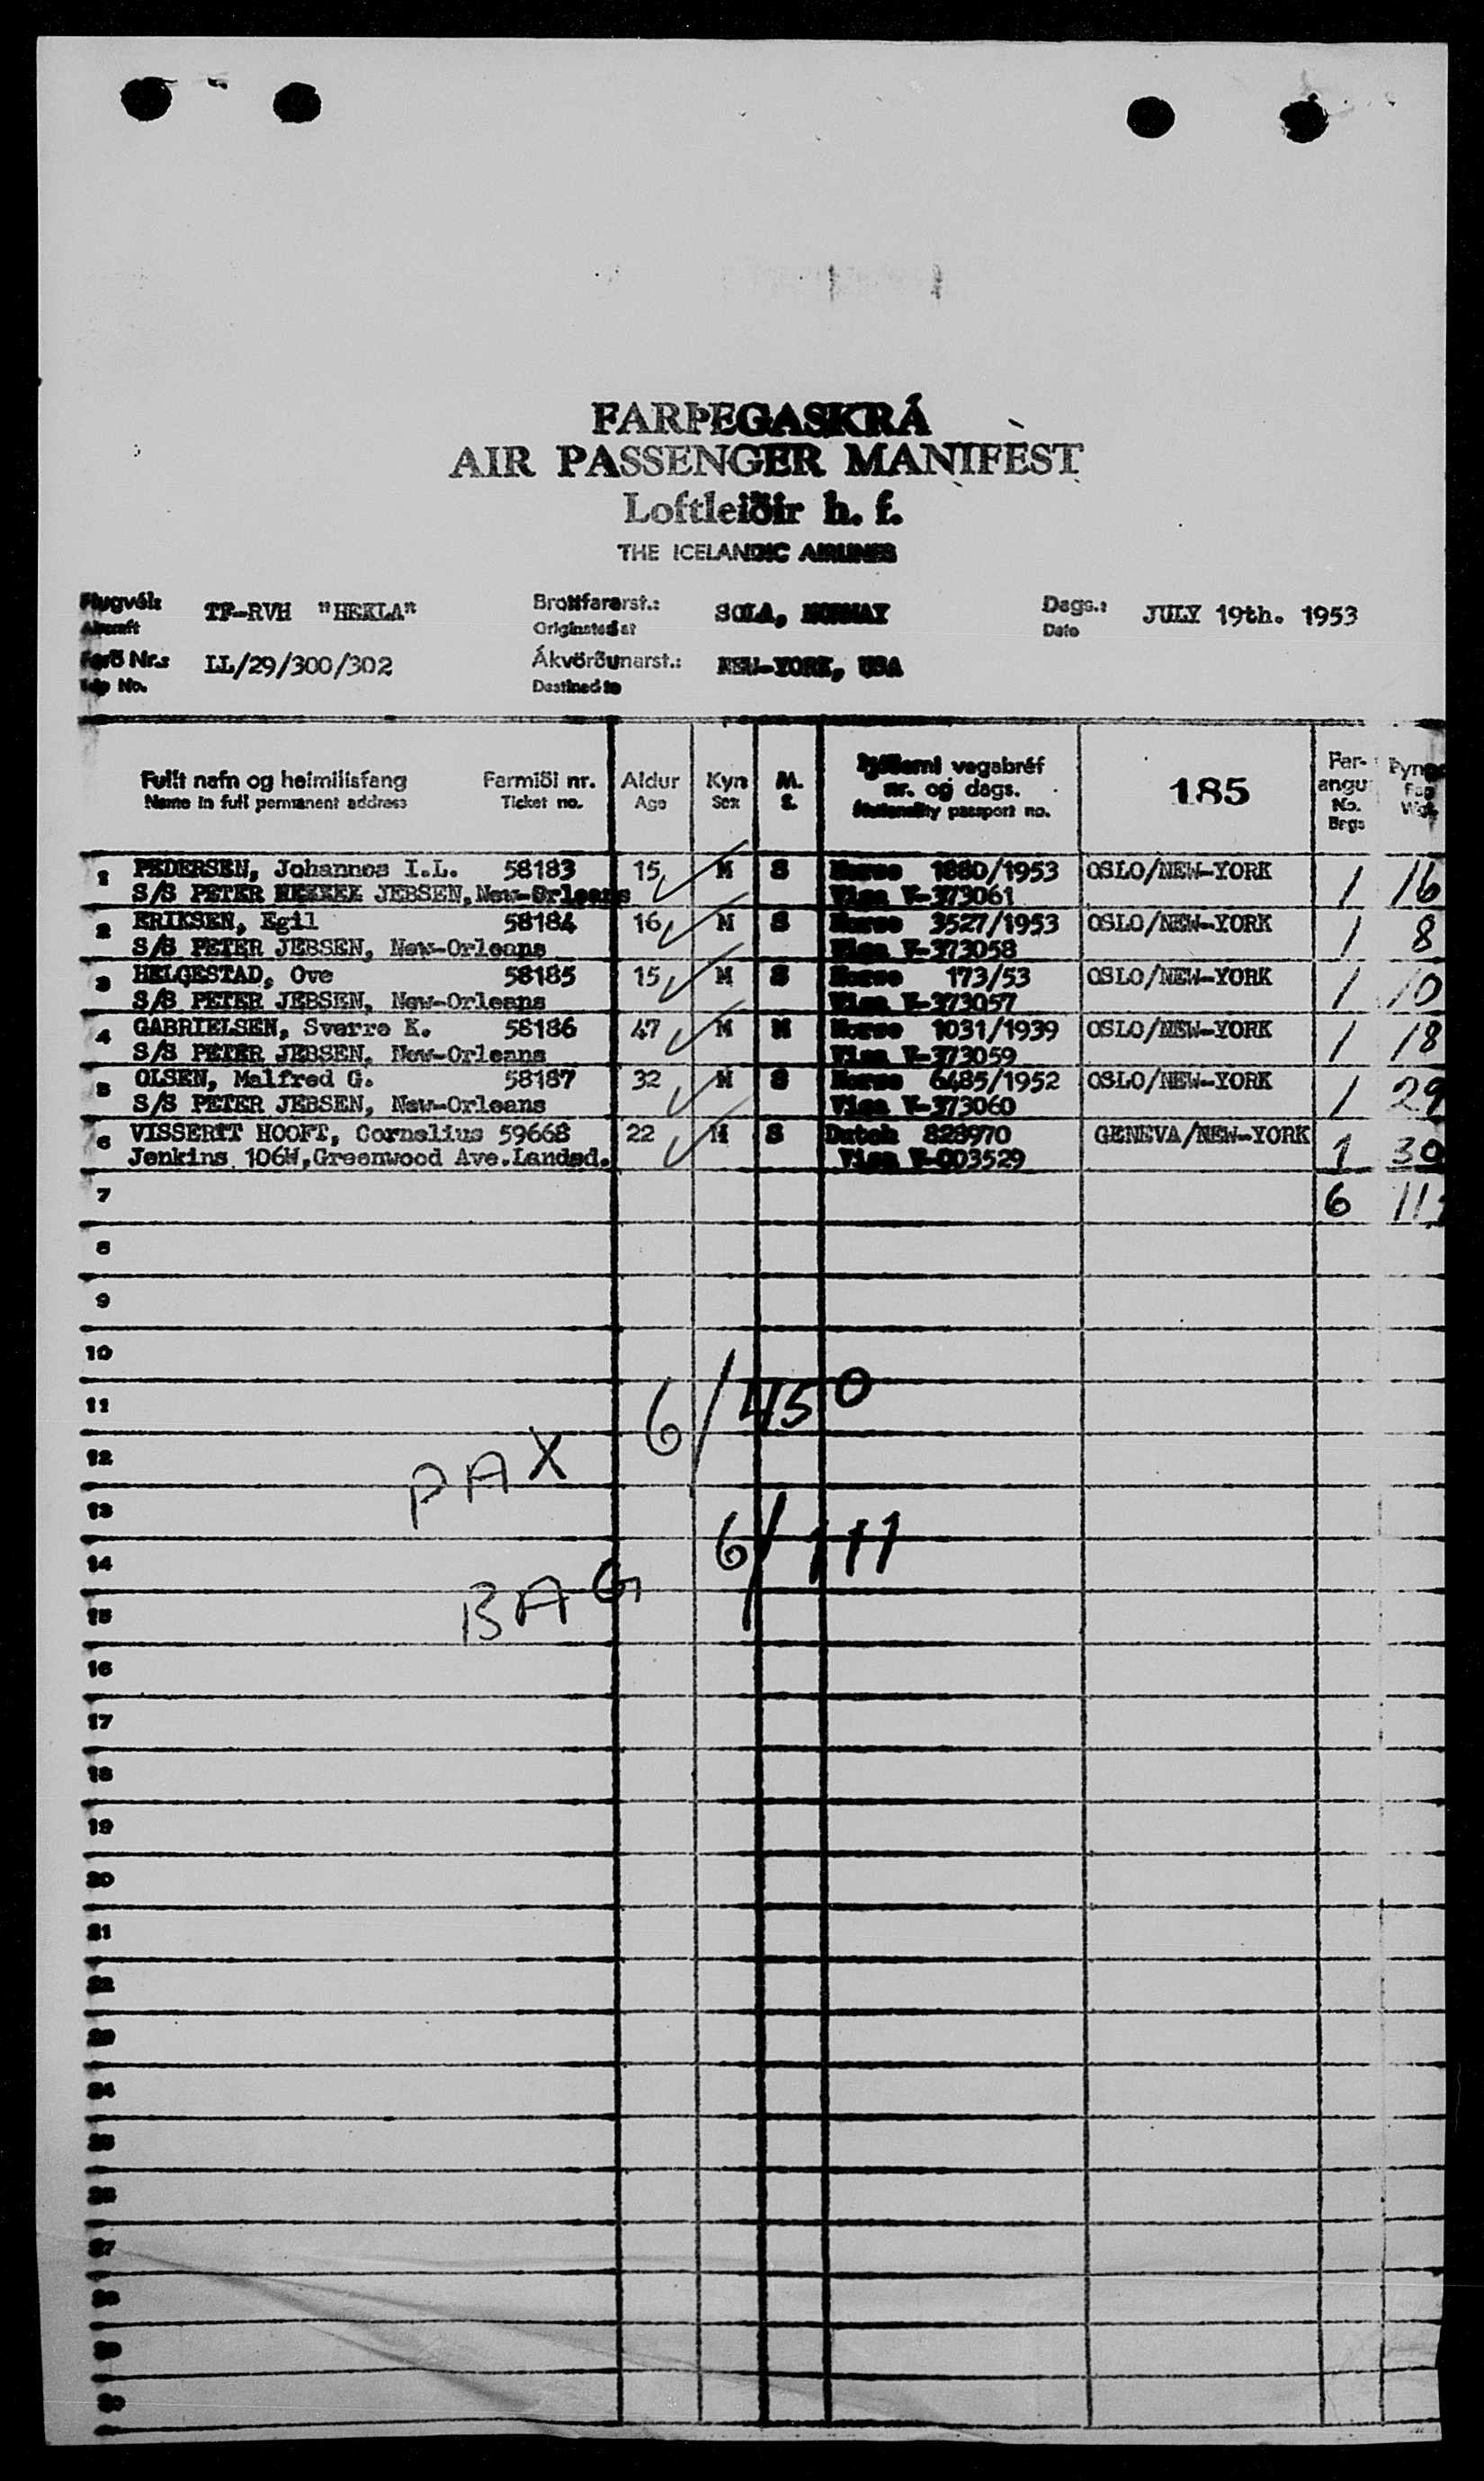 FARÞEGASKRÁ
AIR PASSENGER MANIFEST
Loftleiðir h. f.
THE ICELANDIC AIRLINES
Flugvél: TF-RVH "HEKLA" Brottfararst.: SOLA, NORWAY Dags.: JULY 19th. 1953
Aircraft Originated at Date
Ferð Nr.: LL/29/300/302 Ákvörðunarst.: NEW-YORK, USA
Trip No. Destined to
Fullt nafn og heimilisfang Farmiði nr. Aldur Kyn M. Þjóðerni vegabréf nr. og dags. 185 Far-angur
Name in full permanent address Ticket no. Age Sex S. Nationality passport no. No. Bags Wgt.
1 PEDERSEN, Johannes I.L. 58183 15 M S Norse 1880/1953 OSLO/NEW-YORK 1 16
S/S PETER JEBSEN, New-Orleans Visa V-373061
2 ERIKSEN, Egil 58184 16 M S Norse 3527/1953 OSLO/NEW-YORK 1 8
S/S PETER JEBSEN, New-Orleans Visa V-373058
3 HELGESTAD, Ove 58185 15 M S Norse 173/53 OSLO/NEW-YORK 1 10
S/S PETER JEBSEN, New-Orleans Visa V-373057
4 GABRIELSEN, Sverre K. 58186 47 M M Norse 1031/1939 OSLO/NEW-YORK 1 18
S/S PETER JEBSEN, New-Orleans Visa V-373059
5 OLSEN, Malfred G. 58187 32 M S Norse 6485/1952 OSLO/NEW-YORK 1 29
S/S PETER JEBSEN, New-Orleans Visa V-373060
6 VISSERTT HOOFT, Cornelius 59668 22 M S Dutch 828970 GENEVA/NEW-YORK 1 30
Jenkins 106W, Greenwood Ave. Landsd. Visa V-003529
7 6 111
8
9
10
11 6/450
12 PAX
13
14 6/111
15 BAG
16
17
18
19
20
21
22
23
24
25
26
27
28
29
30